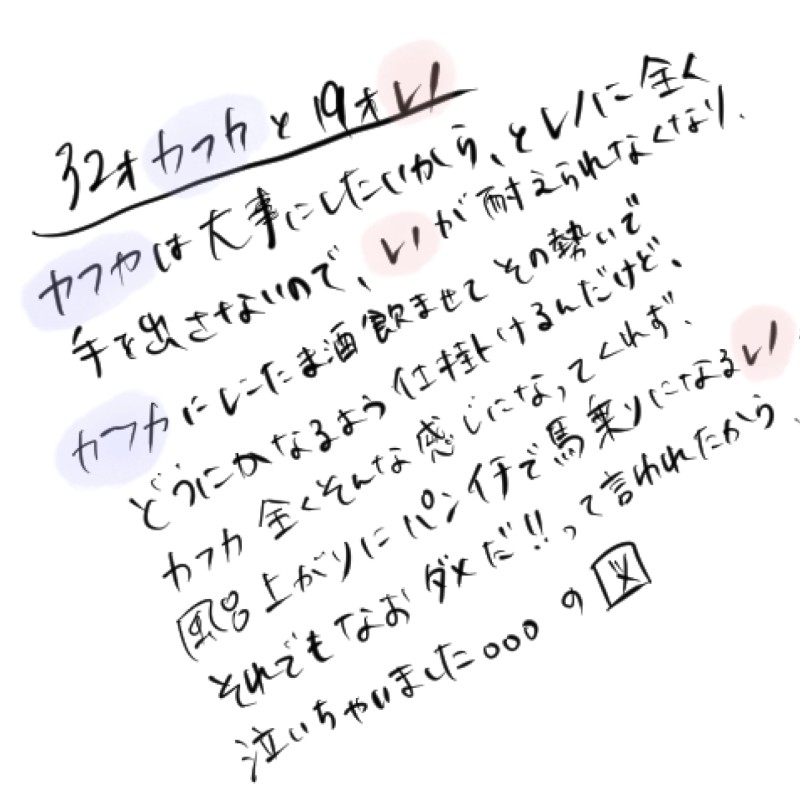 32才カフカと19才レノ
カフカは大事にしたいから、とレノに全く
手を出さないので、レノが耐えられなくなり、
カフカにしこたま酒飲ませてその勢いで
どうにかなるよう仕掛けるんだけど、
カフカ全くそんな感じになってくれず、
風呂上がりにパンイチで馬乗りになるレノ、
それでもなおダメだ!!って言われたから、
泣いちゃいました○○○の図